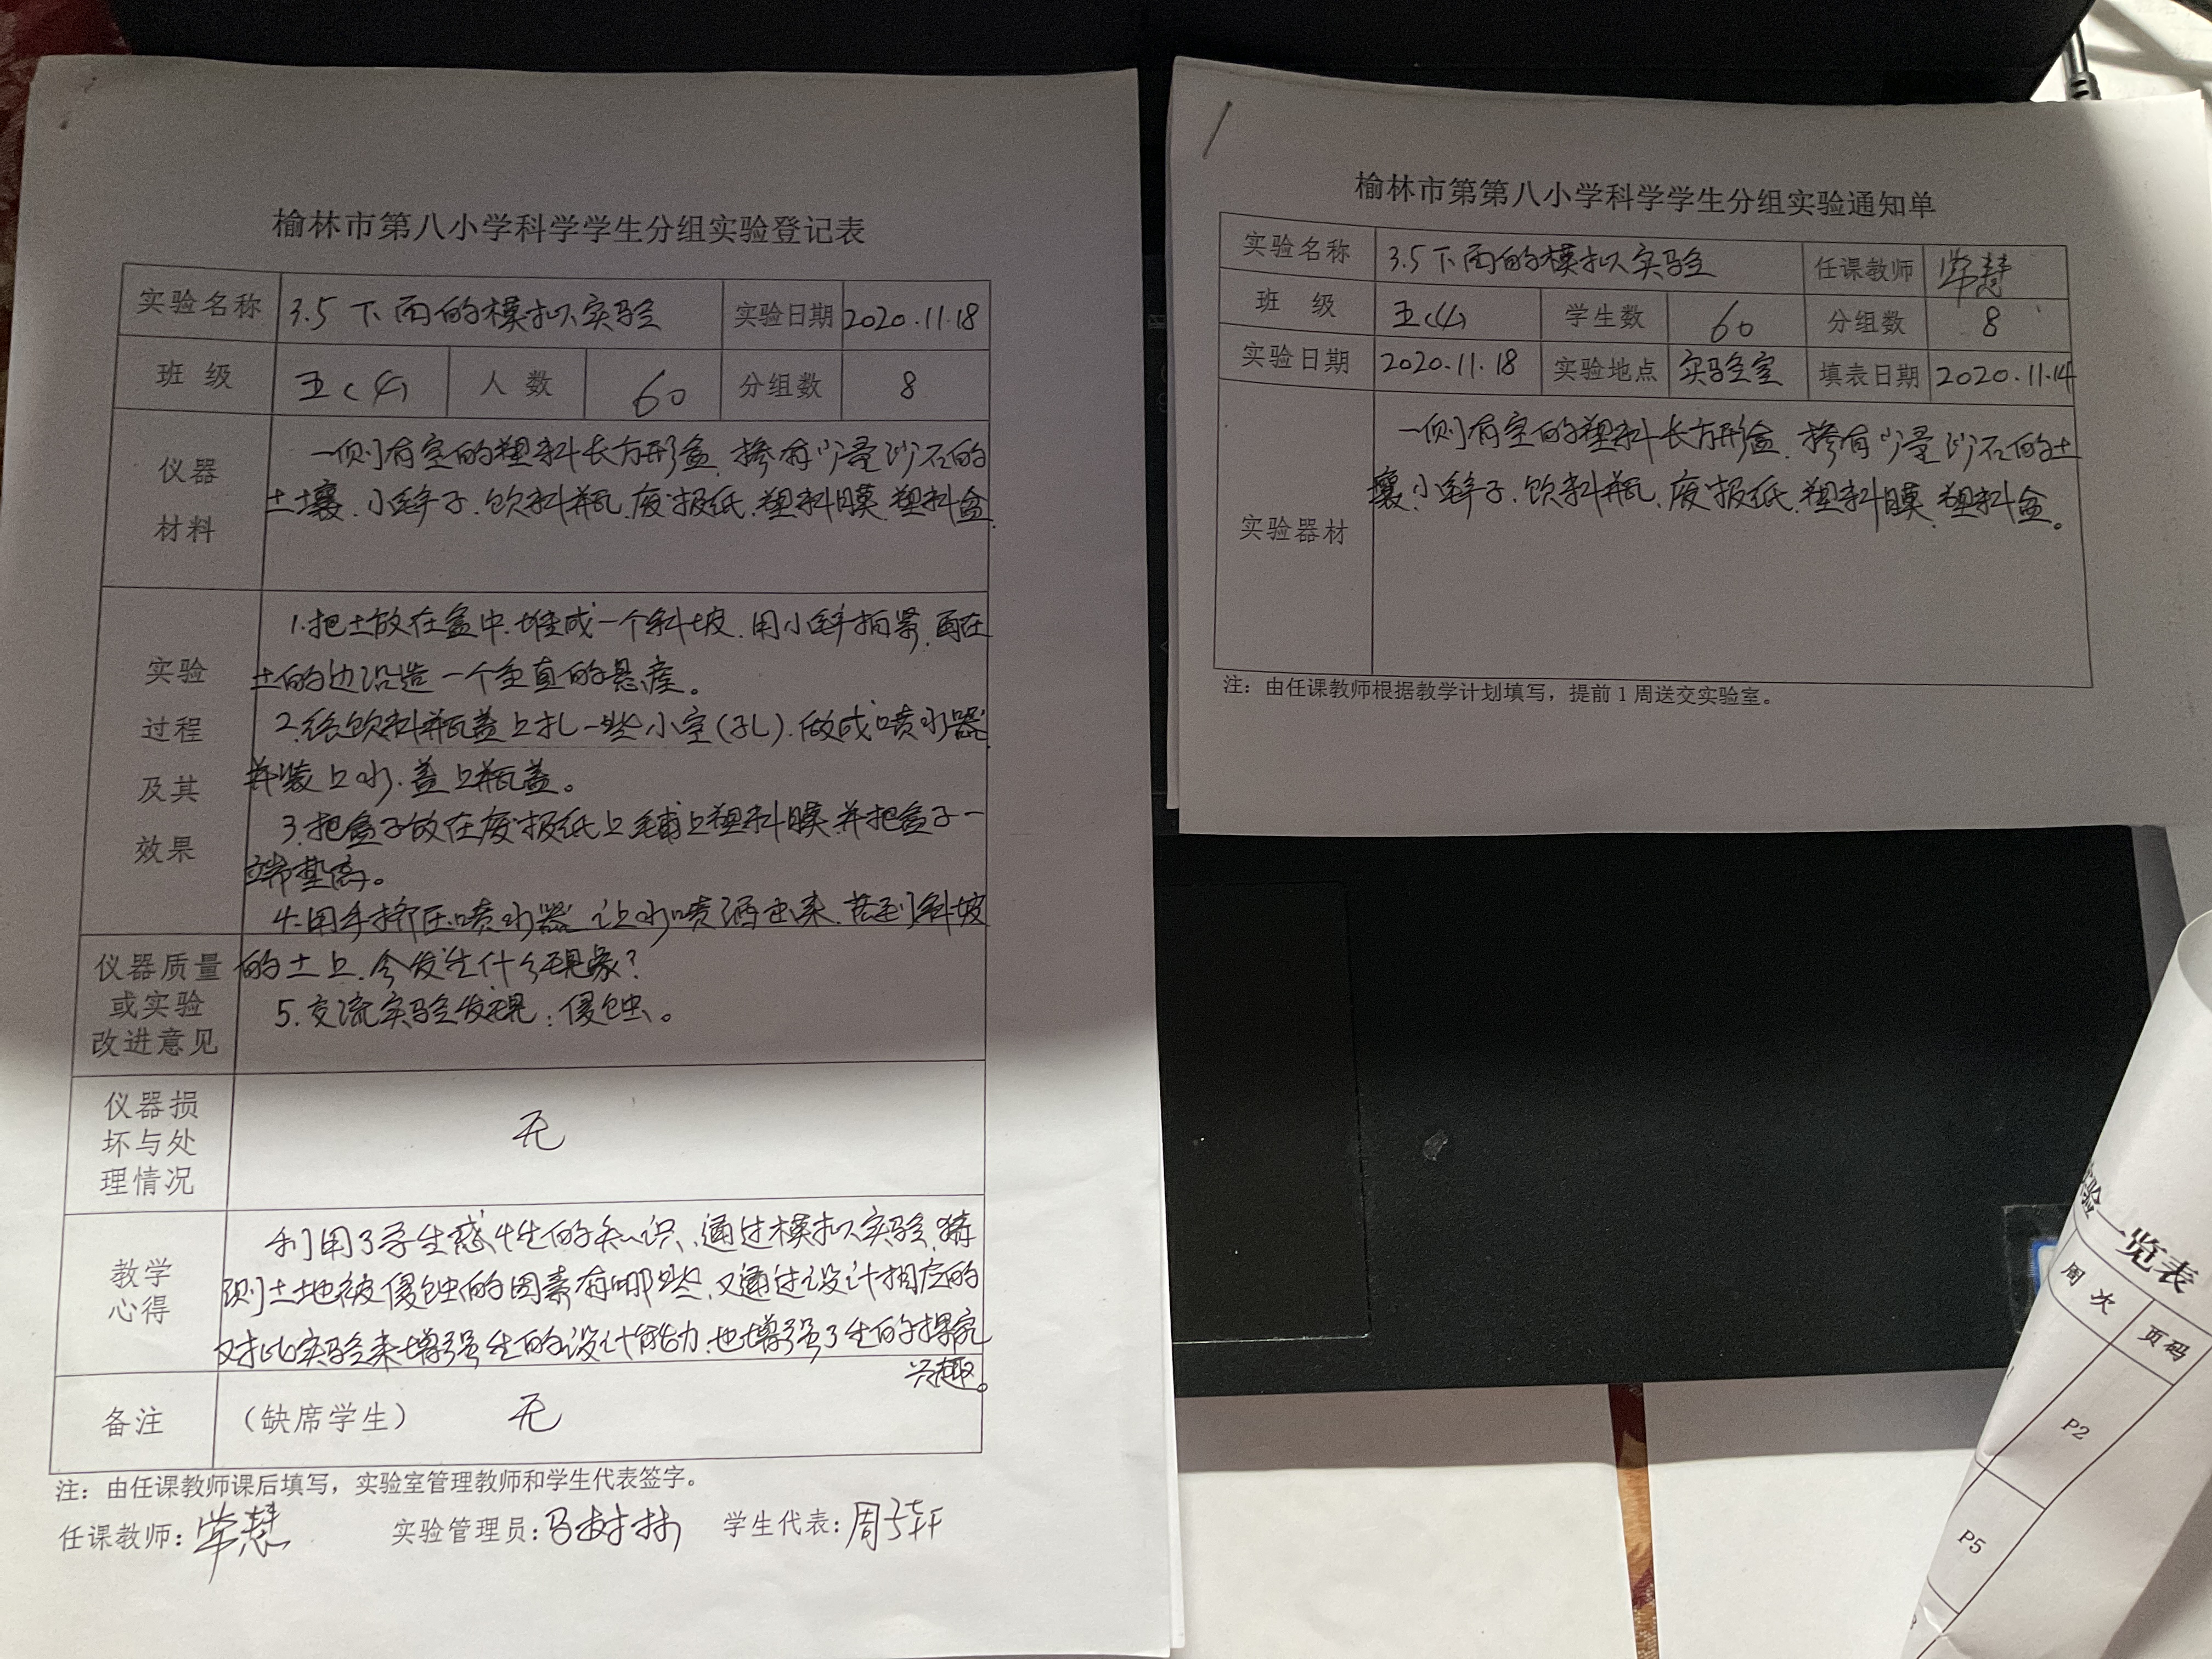 榆林市第八小学科学学生分组实验登记表
实验名称 3.5 下雨的模拟实验 实验日期 2020.11.18
班 级 五(4) 人 数 60 分组数 8
仪器
材料
一侧有空的塑料长方形盒、掺有少量沙石的
土壤、小铲子、饮料瓶、废报纸、塑料膜、塑料盒
实验
过程
及其
效果
1.把土放在盒中、堆成一个斜坡、用小铲拍紧、再在
土的边沿造一个垂直的悬崖。
2.给饮料瓶盖上扎一些小空(孔)、做成喷水器
并装上水、盖上瓶盖。
3.把盒子放在废报纸上铺上塑料膜并把盒子一
端垫高。
4.用手挤压喷水器 让水喷洒出来、落到斜坡
的土上、会发生什么现象?
5.交流实验发现:侵蚀。
仪器质量
或实验
改进意见
仪器损
坏与处
理情况
无
教学
心得
利用了学生感性的知识、通过模拟实验、猜
测土地被侵蚀的因素有哪些、又通过设计相应的
对比实验来增强生的设计能力、也增强了生的探究
兴趣。
备注 (缺席学生) 无
注:由任课教师课后填写,实验室管理教师和学生代表签字。
任课教师: 实验管理员: 学生代表:
榆林市第第八小学科学学生分组实验通知单
实验名称 3.5 下雨的模拟实验 任课教师
班 级 五(4) 学生数 60 分组数 8
实验日期 2020.11.18 实验地点 实验室 填表日期 2020.11.14
实验器材
一侧有空的塑料长方形盒、掺有少量沙石的土
壤、小铲子、饮料瓶、废报纸、塑料膜、塑料盒。
注:由任课教师根据教学计划填写,提前 1 周送交实验室。
验一览表
周 次 页码
P2
P5